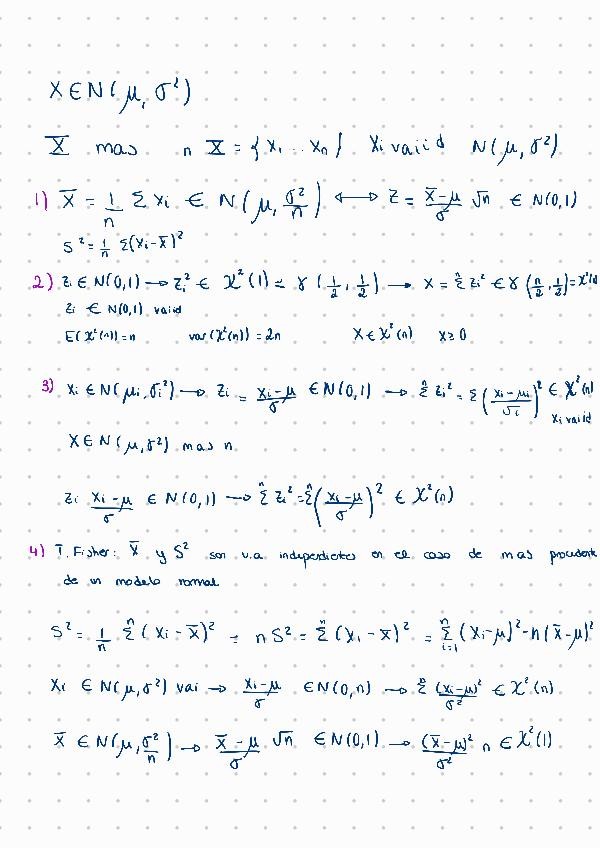 X ∈ N(μ, σ²)
X mas n X = {x₁...xₙ} Xi vaiid N(μ, σ²)
1) X̄ = 1/n Σ xi ∈ N(μ, σ²/n) ⟷ Z = (X̄-μ)/σ √n ∈ N(0,1)
S² = 1/n Σ(xi-x̄)²
2) Zi ∈ N(0,1) → Zi² ∈ χ²(1) = γ(1/2, 1/2) → X = Σⁿ Zi² ∈ γ(n/2, 1/2) = χ²(n)
Zi ∈ N(0,1) vaiid
E(χ²(n)) = n var(χ²(n)) = 2n X ∈ χ²(n) X ≥ 0
3) Xi ∈ N(μi, σi²) → Zi = (xi-μ)/σ ∈ N(0,1) → Σⁿ Zi² = Σ((xi-μi)/σi)² ∈ χ²(n)
Xi vaiid
X ∈ N(μ, σ²) mas n
Zi (xi-μ)/σ ∈ N(0,1) → Σⁿ Zi² = Σⁿ((xi-μ)/σ)² ∈ χ²(n)
4) T. Fisher: X̄ y S² son v.a independientes en el caso de mas procedente
de un modelo normal
S² = 1/n Σⁿ(xi-x̄)² = nS² = Σⁿ(xi-x̄)² = Σⁿᵢ₌₁(xi-μ)²-n(x̄-μ)²
Xi ∈ N(μ, σ²) vai → (xi-μ)/σ ∈ N(0,n) → Σⁿ (xi-μ)²/σ² ∈ χ²(n)
X̄ ∈ N(μ, σ²/n) → (X̄-μ)/σ √n ∈ N(0,1) → (X̄-μ)²/σ² n ∈ χ²(1)